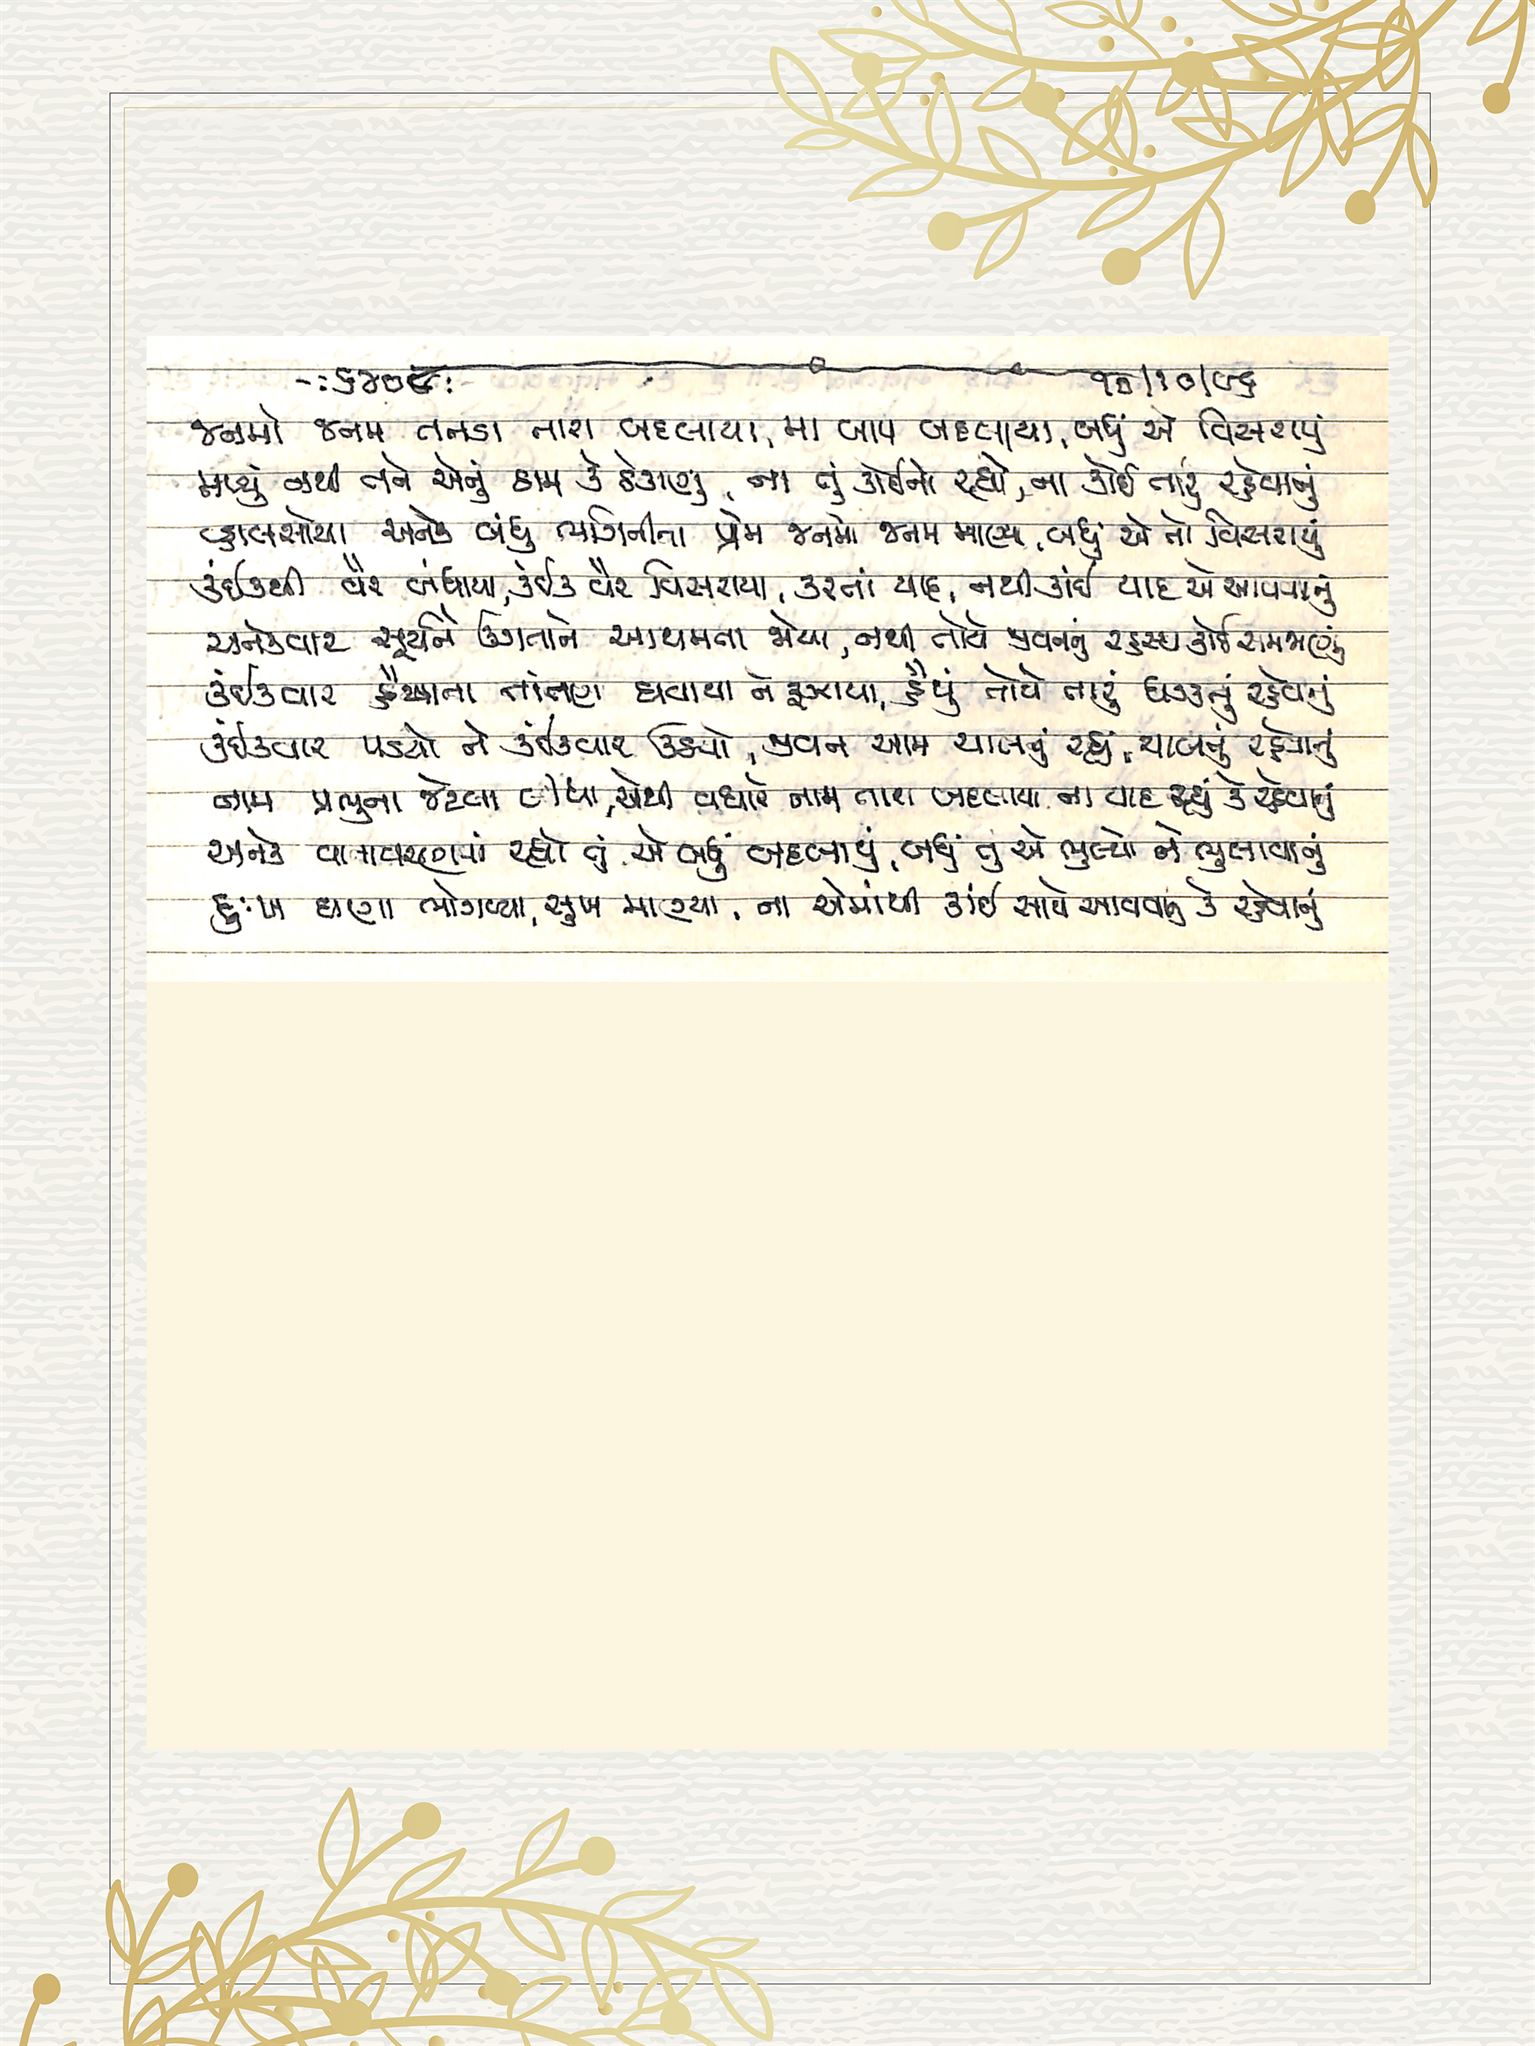 -:૬૪૦૯:- ૧૭/૧૦/૯૬
જનમો જનમ તનડા તારા બદલાયા, મા બાપ બદલાયા, બધું એ વિસરાયું
મળ્યું નથી તને એનું ઠામ કે ઠેકાણું, ના તું કોઈનો રહ્યો, ના કોઈ તારું રહેવાનું
વ્હાલસોયા અનેક બંધુ ભગિનીના પ્રેમ જનમો જનમ માણ્યા, બધું એ તો વિસરાયું
કંઈકથી વૈર બંધાયા, કંઈક વૈર વિસરાયા, કરનાં યાદ, નથી કાંઈ યાદ એ આવવાનું
અનેકવાર સૂર્યને ઉગતાને આથમતા જોયા, નથી તોયે જીવનનું રહસ્ય કોઈ સમજાણું
કંઈકવાર હૈયાના તાંતણા ઘવાયા ને રૂઝાયા, હૈયું તોયે તારું ધડકતું રહેવાનું
કંઈકવાર પડયો ને કંઈકવાર ઉઠયો, જીવન આમ ચાલતું રહ્યું, ચાલતું રહેવાનું
નામ પ્રભુના જેટલા લીધા, એથી વધારે નામ તારા બદલાયા ના યાદ રહ્યું કે રહેવાનું
અનેક વાતાવરણમાં રહ્યો તું એ બધું બદલાયું, બધું તું એ ભુલ્યો ને ભુલાવાનું
દુઃખ ઘણા ભોગવ્યા, સુખ માણ્યા, ના એમાંથી કાંઈ સાથે આવવાનું કે રહેવાનું